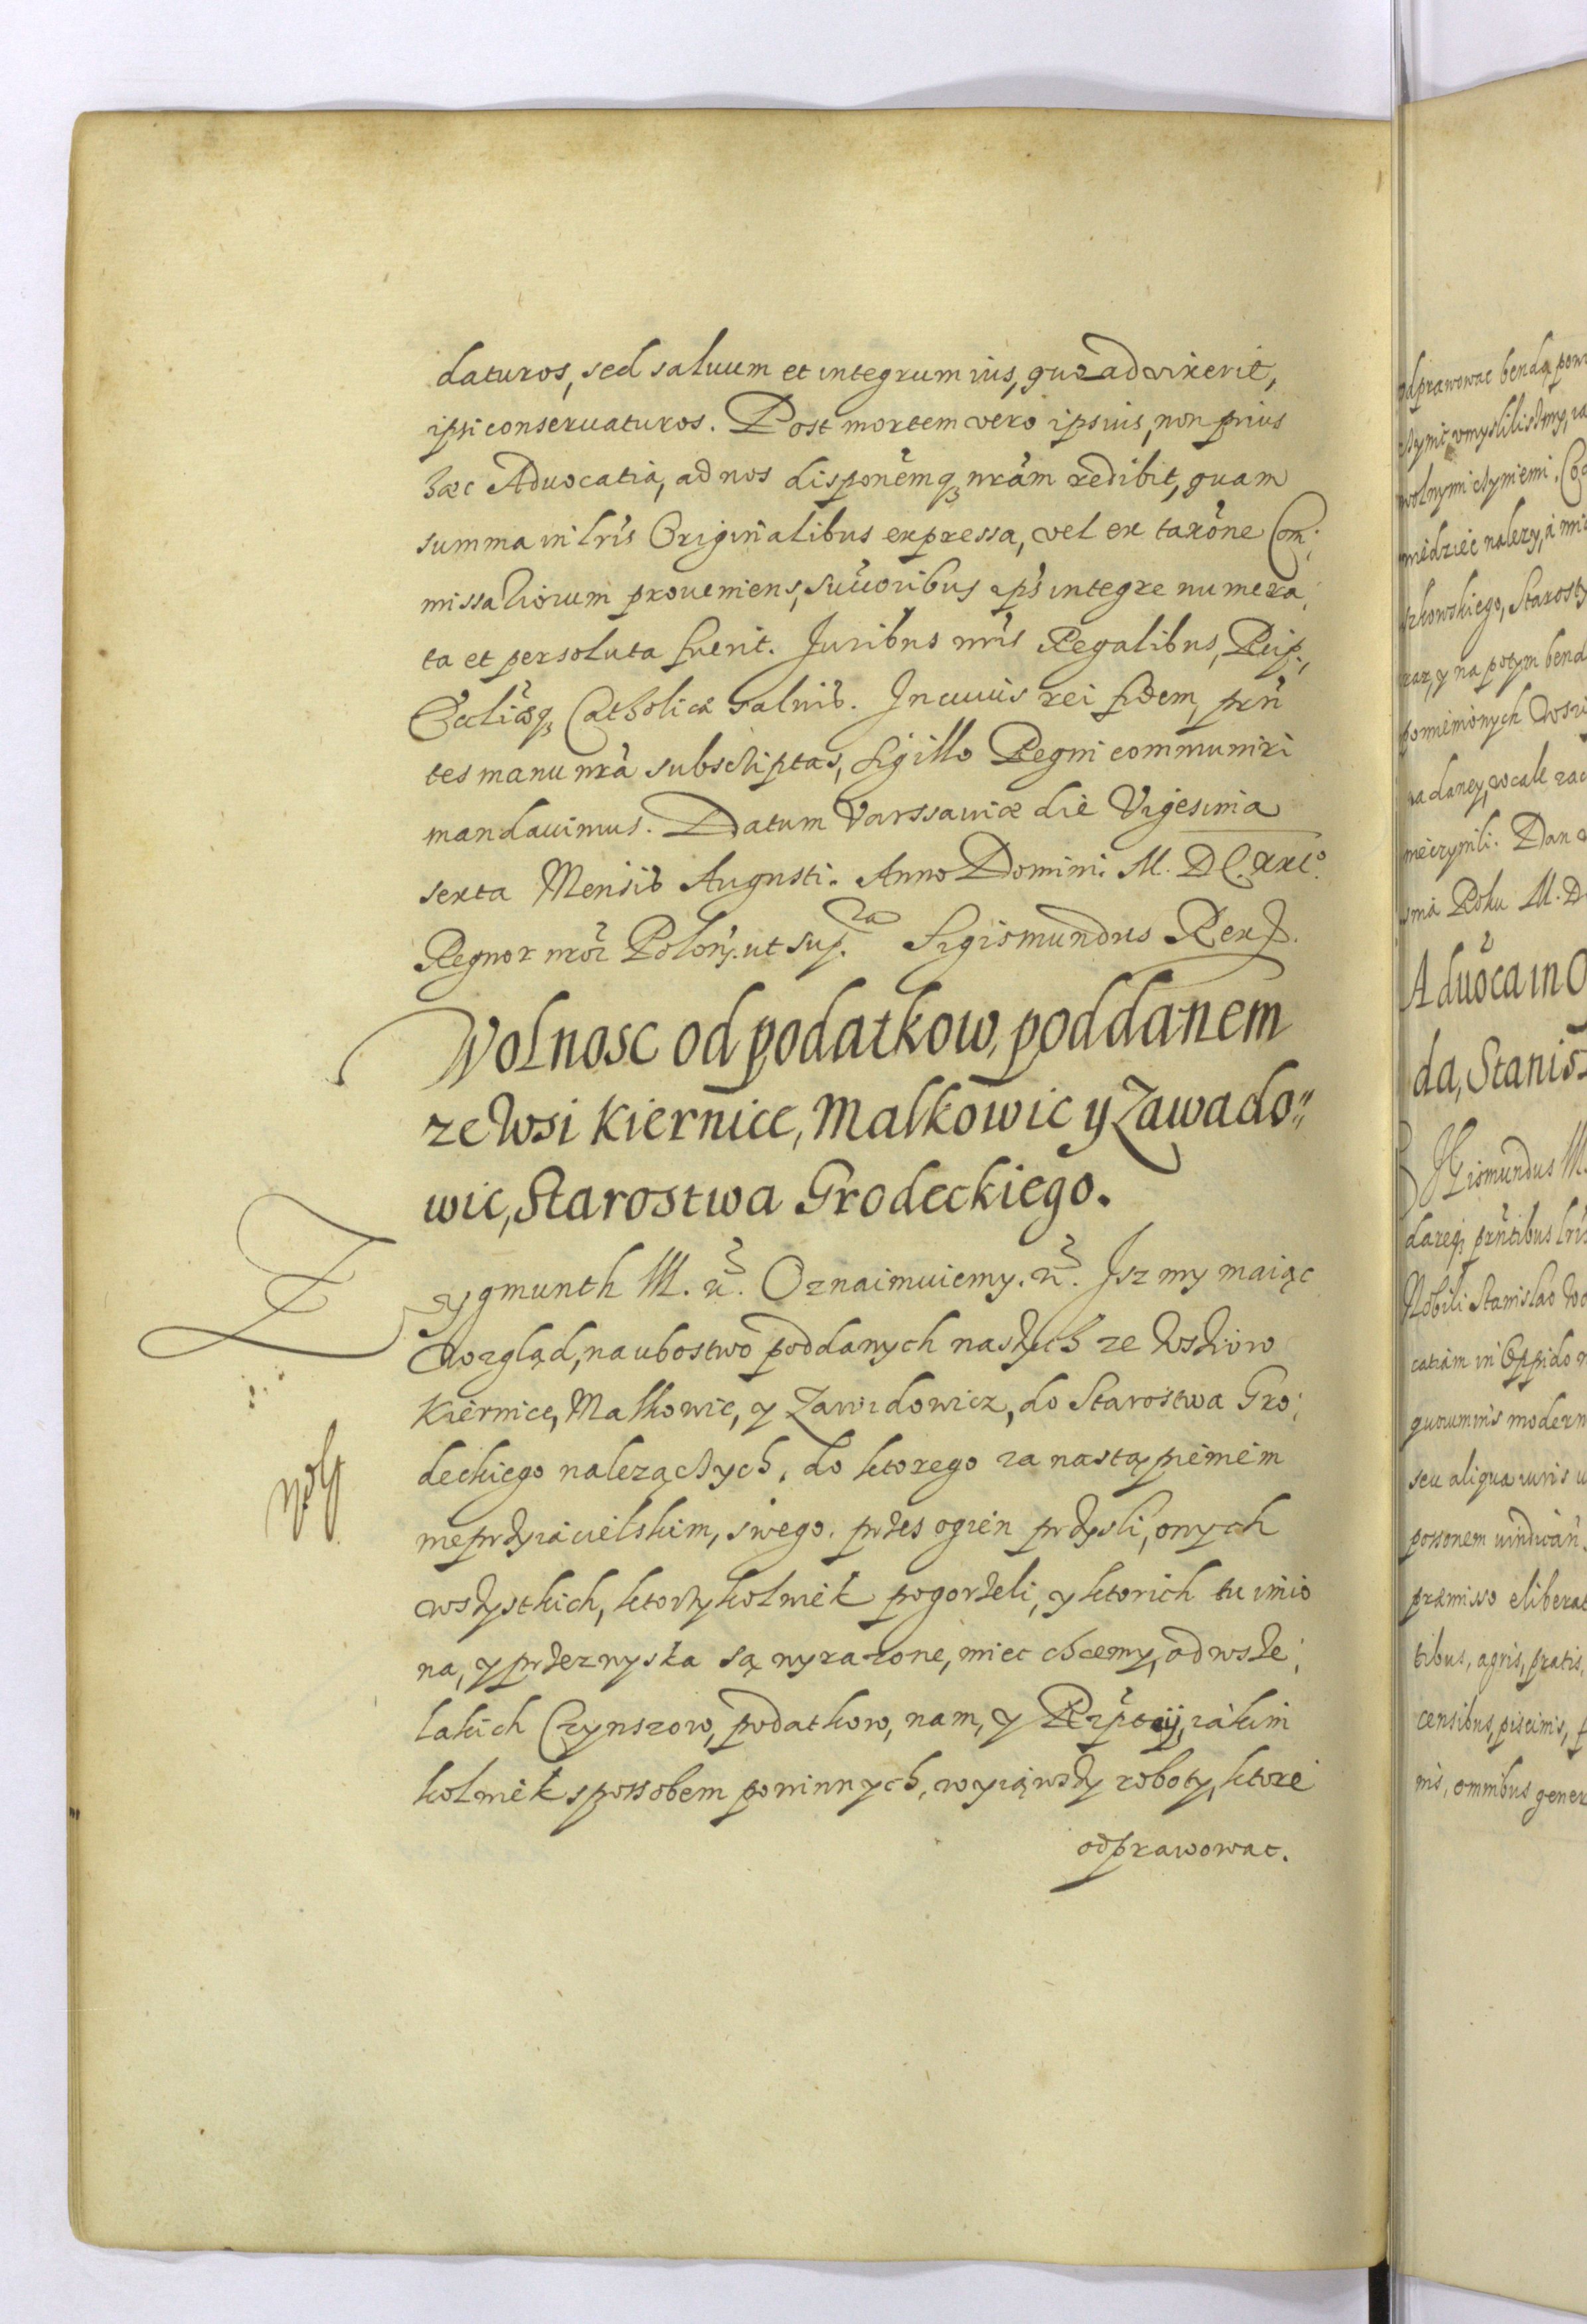 daturos, sed saluum et integrum ius, quo ad vixerit,
ipsi conseruaturos. Post mortem vero ipsius, non prius
haec Aduocatia, ad nos disponemq nram redibit, quam
summa in lris Originalibus expressa, vel ex taxone Com:
missariorum proueniens, suuoribus eps integre numera:
ta et persoluta fuerit. Juribus nris Regalibus, Reip.,
Eccliaeq Catholicae saluis. In cuius rei fidem, prn
tes manu nra subscriptas, sigillo Regni communiri
mandauimus. Datum Varssauiae die Vigesima
sexta Mensis Augusti. Anno Domini. M. D C. XXI°
Regnor nror Polon. ut supra Sigismundus Rex.
Wolnosc od podatkow, poddanem
ze wsi Kiernice, Malkowic y Zawado"
wic, Starostwa Grodeckiego.
Zygmunth III. &. Oznaimuiemy. &. Isz my maiąc
wozgląd, na ubostwo poddanych naszych ze wsziow
Kiernice, Malkowic, y Zawidowicz, do Starostwa Gro:
deckiego nalezączych, do ktorego za nastąpieniem
nieprzyiacielskiem, swego. przes ogien przysli, onych
wszystkich, ktorzykolwiek pogorzeli, y ktorich tu imio
na, y przezwyska są wyrazone, miec chcemy, od wsze:
lakich Czynszow, podatkow, nam, y Rzptey, iakim
kolwiek sposobem powinnych, wyiąwszy roboty, ktore
odprawowac.
odprawowac bendą
wolnymi czyniemi.
wiedziec nalezy,
Starosty
raz, y na potym bend
pomienionych
nadaney, wcale
nieczynili. Dan
Roku M. D
Aduoca in
da, Stanis
Sigismundus
dareq prntibus lris
Nobili Stanislao
catiam in Oppido
modern
seu aliqua iuris
praemisso
tibus, agris, pratis,
censibus, piscinis,
nis, omnibus gener